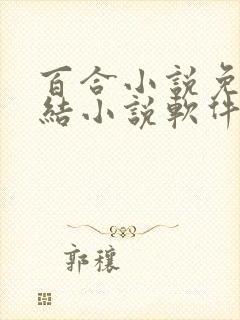 百合小說免
結小說軟件
郭穰